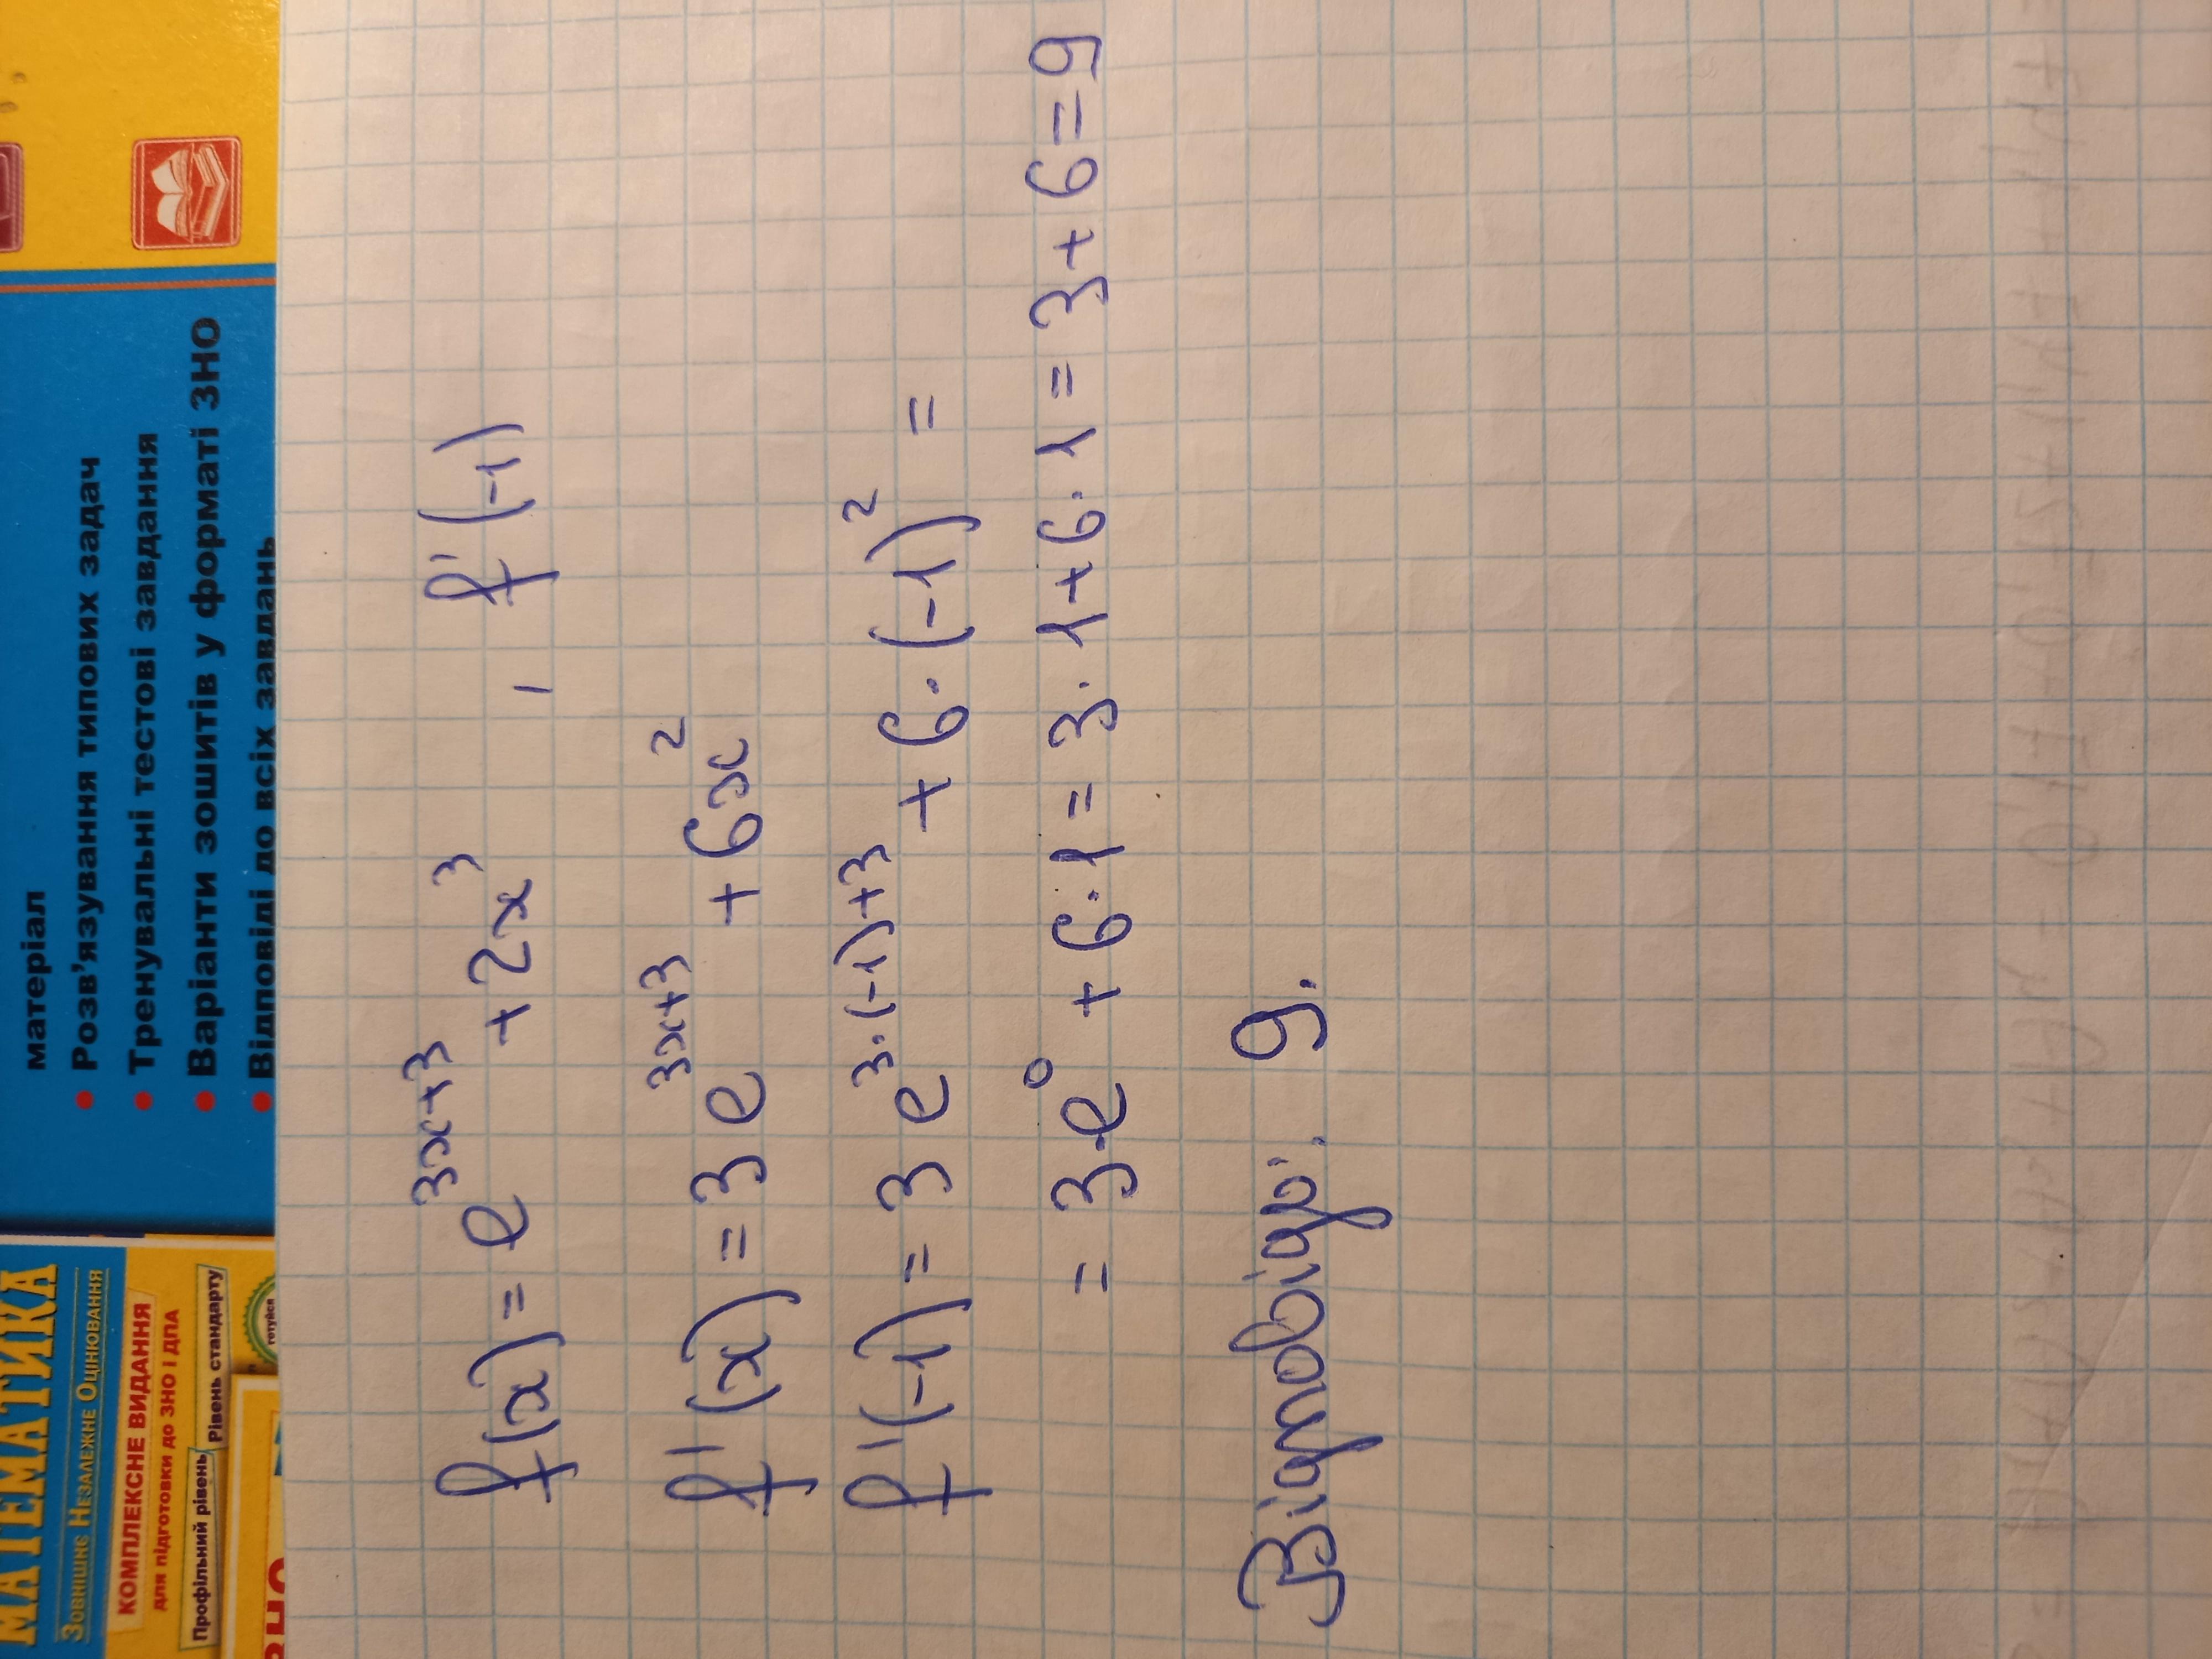 матеріал
• Розв'язування типових задач
• Тренувальні тестові завдання
• Варіанти зошитів у форматі ЗНО
• Відповіді до всіх завдань
МАТЕМАТИКА
Зовнішнє Незалежне Оцінювання
КОМПЛЕКСНЕ ВИДАННЯ
для підготовки до ЗНО і ДПА
Профільний рівень Рівень стандарту
готуйся
ЗНО
f(x) = e^{3x+3} + 2x^3, f'(-1)
f'(x) = 3e^{3x+3} + 6x^2
f'(-1) = 3e^{3·(-1)+3} + 6·(-1)^2 =
= 3·e^0 + 6·1 = 3·1+6·1 = 3+6=9
Відповідь: 9.